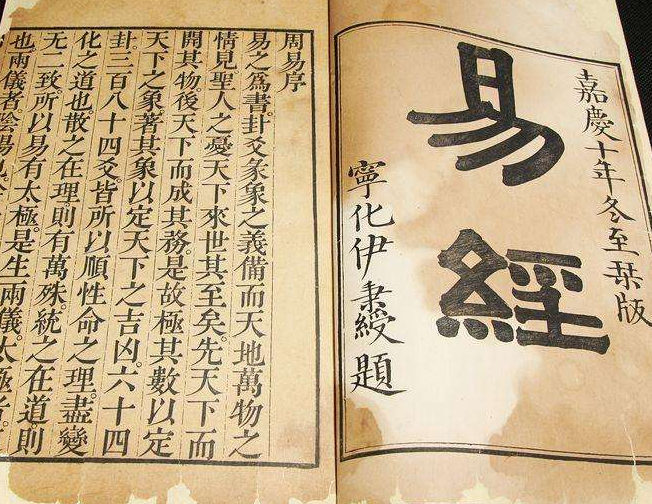 嘉慶十年冬至栞版
易經
寧化伊秉綬題
周易序
易之為書卦爻彖象之義備而天地萬物之
情見聖人之憂天下來世其至矣先天下而
開其物後天下而成其務是故極其數以定
天下之象著其象以定天下之吉凶六十四
卦三百八十四爻皆所以順性命之理盡變
化之道也散之在理則有萬殊統之在道則
無二致所以易有太極是生兩儀太極者
也兩儀者陰陽也